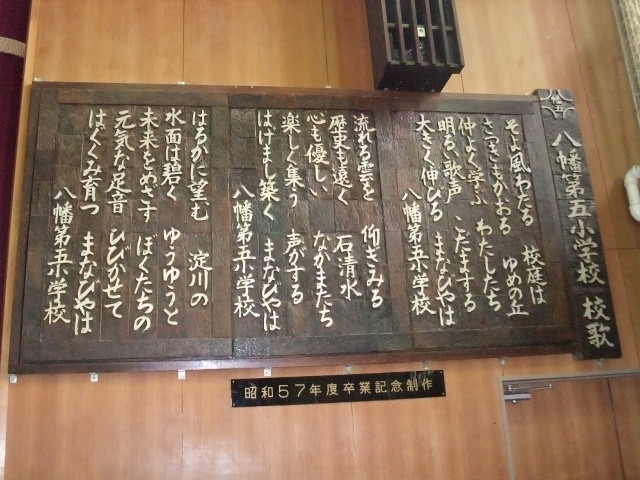 八幡第五小学校 校歌
そよ風わたる 校庭は
さつきもかおる ゆめの丘
仲よく学ぶ わたしたち
明るい歌声 こだまする
大きく伸びる まなびやは
八幡第五小学校
流れる雲を 仰ぎみる
歴史も遠く 石清水
心も優しい ながまたち
楽しく集う 声がする
はげまし築く まなびやは
八幡第五小学校
はるかに望む 淀川の
水面は碧く ゆうゆうと
未来をめざす ぼくたちの
元気な足音 ひびかせて
はぐくみ育つ まなびやは
八幡第五小学校
昭和57年度卒業記念制作